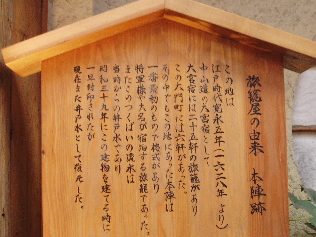 旅籠屋の由来 本陣跡
この地は
江戸時代寛永五年(一六二八年より)
中山道の大宮宿として、
大宮宿には二十五軒の旅籠があり
この大門町には六軒があった。
その中でもこの地にあった本陣は
一番最初のもので格式があり
将軍様や大名が宿泊する旅籠であった。
またこのつくばいの流水は
当時からの井戸水であり
昭和三十九年にこの建物を建てる時に
一旦封印されたが
現在また井戸水として復元した。